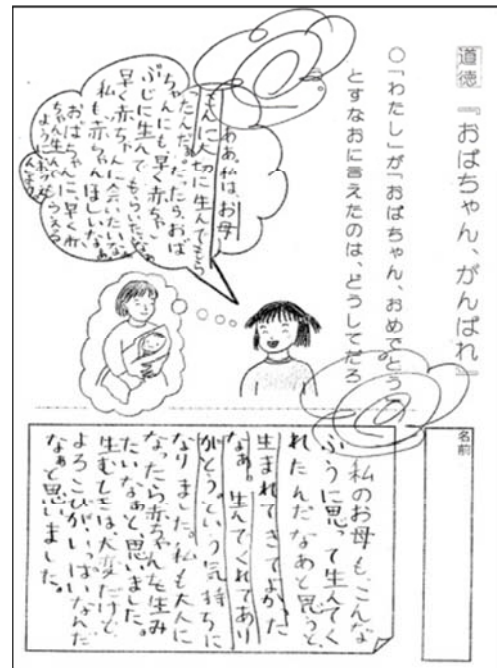 道徳 『おばちゃん、がんばれ』
○「わたし」が「おばちゃん、おめでとう
とすなおに言えたのは、どうしてだろ
ああ。私は、お母
さんに大切に生んでもら
たんだ。だったら、おば
ちゃんにも、早く赤ちゃ
ぶじに生んでもらいたいなあ
早く赤ちゃんに会いたいな
私も赤ちゃんほしいなあ
おばちゃんに、早く赤
ちゃん生んで
名前
私のお母も、こんな
ふうに思って生んでく
れたんだなあと思うと、
生まれてきてよかった
なぁ。生んでくれてあり
がとう。という気持ちに
なりました。私も大人に
なったら赤ちゃんを生み
たいなぁと、思いました。
生むときは、大変だけど、
よろこびがいっぱいなんだ
なぁと思いました。